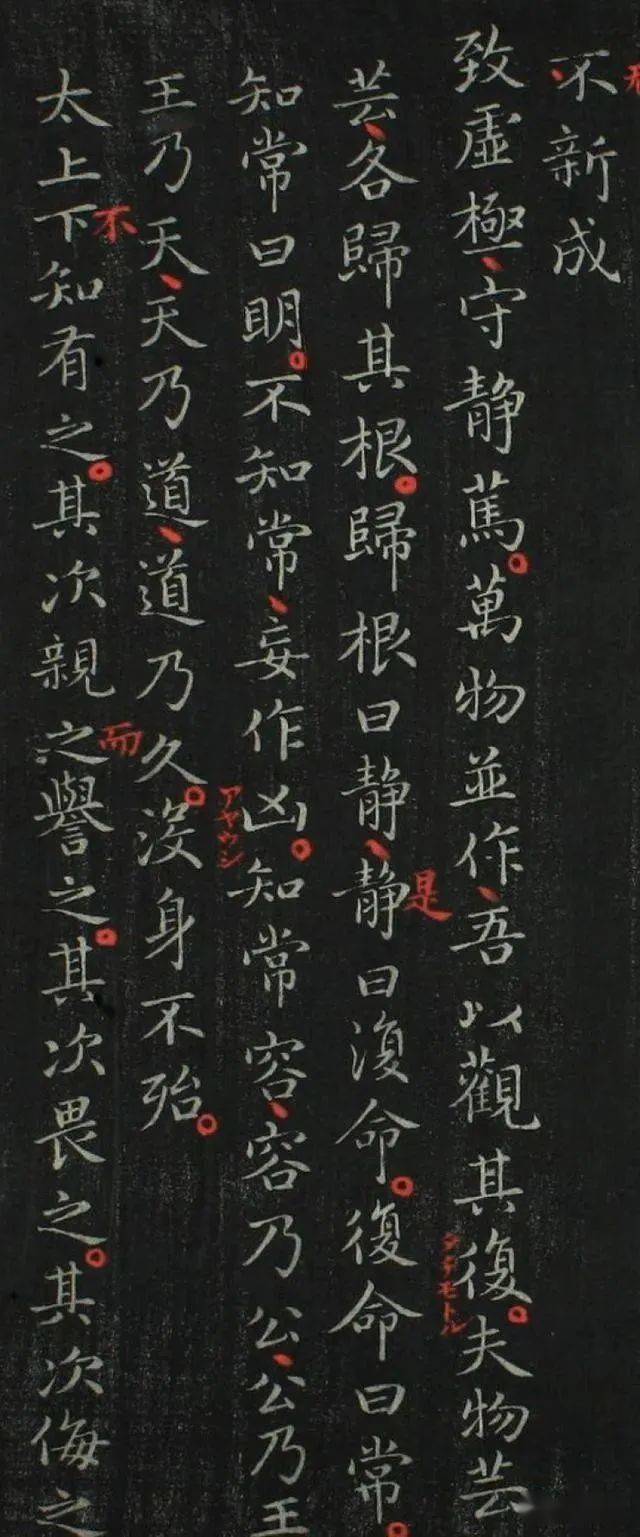 、不新成
致虛極、守静篤。萬物並作、吾以觀其復。夫物芸
タチモトル
是
芸、各歸其根。歸根曰静、静曰復命。復命曰常。
知常曰明。不知常、妄作凶。知常容、容乃公、公乃王
アヤウシ
王乃天、天乃道、道乃久。没身不殆。
不
而
太上下知有之。其次親之譽之。其次畏之。其次侮之